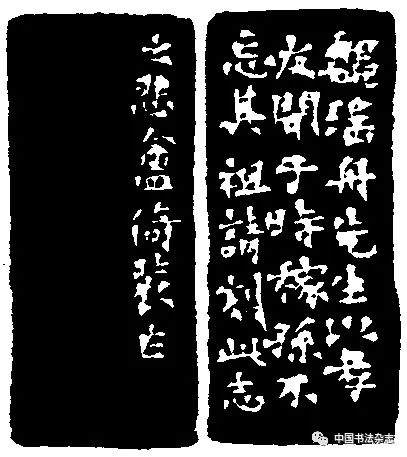 魏瑤舟先生以孝
友聞于時稼孫不
忘其祖請刻此志
之悲盦倚裝占
中国书法杂志